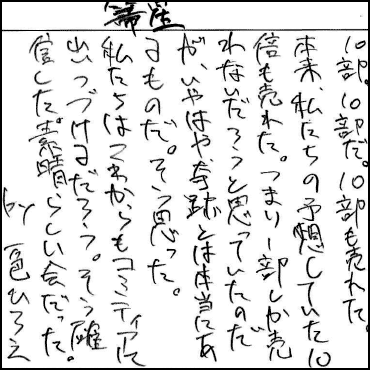 箒星
10部。10部だ。10部も売れた。
本来、私たちの予想していた10
倍も売れた。つまり1部しか売
れないだろうと思っていたのだ
が、いやはや奇跡とは本当にあ
るものだ。そう思った。
私たちはこれからもコミティアに
出つづけるだろう。そう確
信した。素晴らしい会だった。
by